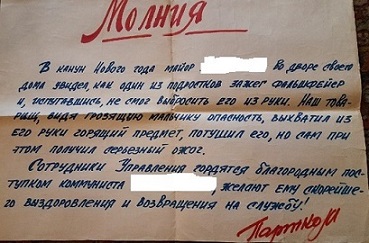 Молния
В канун Нового года майор во дворе своего
дома увидел, как один из подростков зажег фальшфейер
и, испугавшись, не смог выбросить его из руки. Наш това-
рищ, видя грозящую мальчику опасность, выхватил из
его руки горящий предмет, потушил его, но сам при
этом получил серьезный ожог.
Сотрудники Управления гордятся благородным пос-
тупком коммуниста , желают ему скорейше-
го выздоровления и возвращения на службу!
Партком